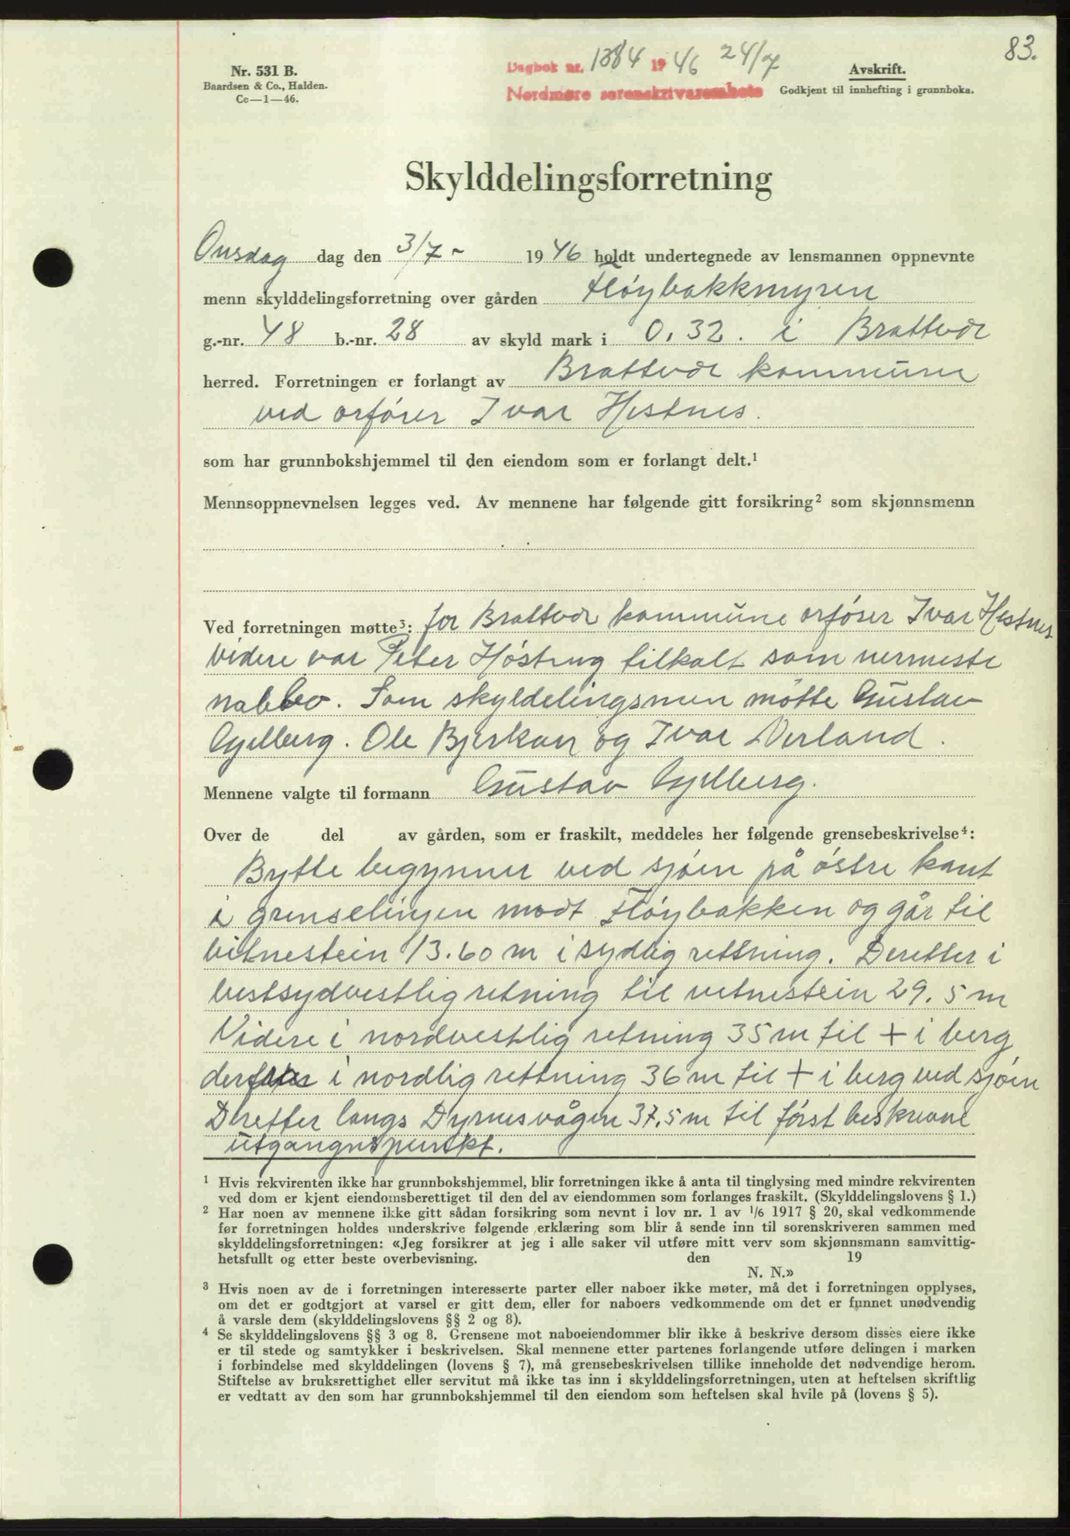 83.
Nr. 531 B.
Baardsen & Co., Halden.
Cc—1—46.
Dagbok nr. 1384 1946 24/7
Nordmøre sorenskriverembete
Avskrift.
Godkjent til innhefting i grunnboka.
Skylddelingsforretning
Onsdag dag den 3/7- 1946 holdt undertegnede av lensmannen oppnevnte
menn skylddelingsforretning over gården Fløybakkmyren
g.-nr. 48 b.-nr. 28 av skyld mark i 0,32. i Brattvær
herred. Forretningen er forlangt av Brattvær kommune
ved orfører Ivar Hestnes.
som har grunnbokshjemmel til den eiendom som er forlangt delt.¹
Mennsoppnevnelsen legges ved. Av mennene har følgende gitt forsikring² som skjønnsmenn
Ved forretningen møtte³: for Brattvær kommune orfører Ivar Hestnes
videre var Peter Høstrug tilkalt som nermeste
nabbo. Som skyldelingsmen møtte Gustav
Gjelberg. Ole Bjerkan og Ivar Verland.
Mennene valgte til formann Gustav Gjelberg.
Over de del av gården, som er fraskilt, meddeles her følgende grensebeskrivelse⁴:
Bytte begynner ved sjøen på østre kant
i grenselinjen modt Fløybakken og går til
vitnestein 13.60 m i sydlig rettning. Deretter i
vestsydvestlig retning til vitnestein 29.5 m
Videre i nordvestlig retning 35 m til + i berg
derfrar i nordlig rettning 36 m til + i berg ved sjøen
Deretter langs Dyrnesvågen 37.5 m til først beskrevne
utgangnspunkt.
¹ Hvis rekvirenten ikke har grunnbokshjemmel, blir forretningen ikke å anta til tinglysing med mindre rekvirenten
ved dom er kjent eiendomsberettiget til den del av eiendommen som forlanges fraskilt. (Skylddelingslovens § 1.)
² Har noen av mennene ikke gitt sådan forsikring som nevnt i lov nr. 1 av 1/6 1917 § 20, skal vedkommende
før forretningen holdes underskrive følgende erklæring som blir å sende inn til sorenskriveren sammen med
skylddelingsforretningen: «Jeg forsikrer at jeg i alle saker vil utføre mitt verv som skjønnsmann samvittig-
hetsfullt og etter beste overbevisning. den 19
N. N.»
³ Hvis noen av de i forretningen interesserte parter eller naboer ikke møter, må det i forretningen opplyses,
om det er godtgjort at varsel er gitt dem, eller for naboers vedkommende om det er funnet unødvendig
å varsle dem (skylddelingslovens §§ 2 og 8).
⁴ Se skylddelingslovens §§ 3 og 8. Grensene mot naboeiendommer blir ikke å beskrive dersom disses eiere ikke
er til stede og samtykker i beskrivelsen. Skal mennene etter partenes forlangende utføre delingen i marken
i forbindelse med skylddelingen (lovens § 7), må grensebeskrivelsen tillike inneholde det nødvendige herom.
Stiftelse av bruksrettighet eller servitut må ikke tas inn i skylddelingsforretningen, uten at heftelsen skriftlig
er vedtatt av den som har grunnbokshjemmel til den eiendom som heftelsen skal hvile på (lovens § 5).